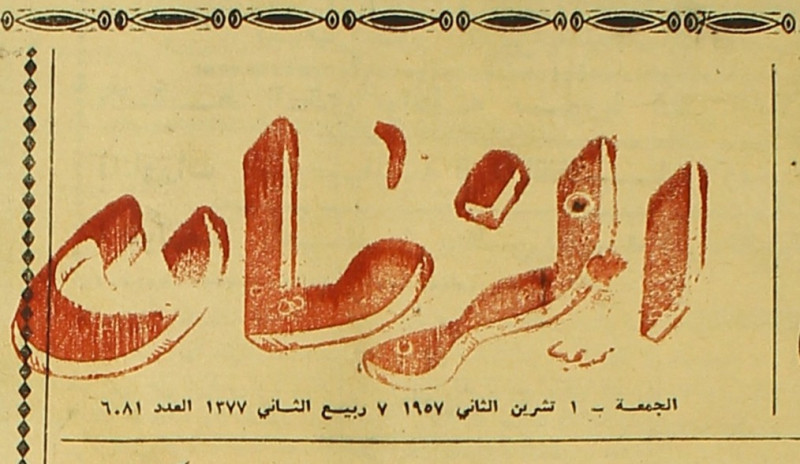 الزمان
الجمعة - ١ تشرين الثاني ١٩٥٧ ٧ ربيع الثاني ١٣٧٧ العدد ٦٠٨١